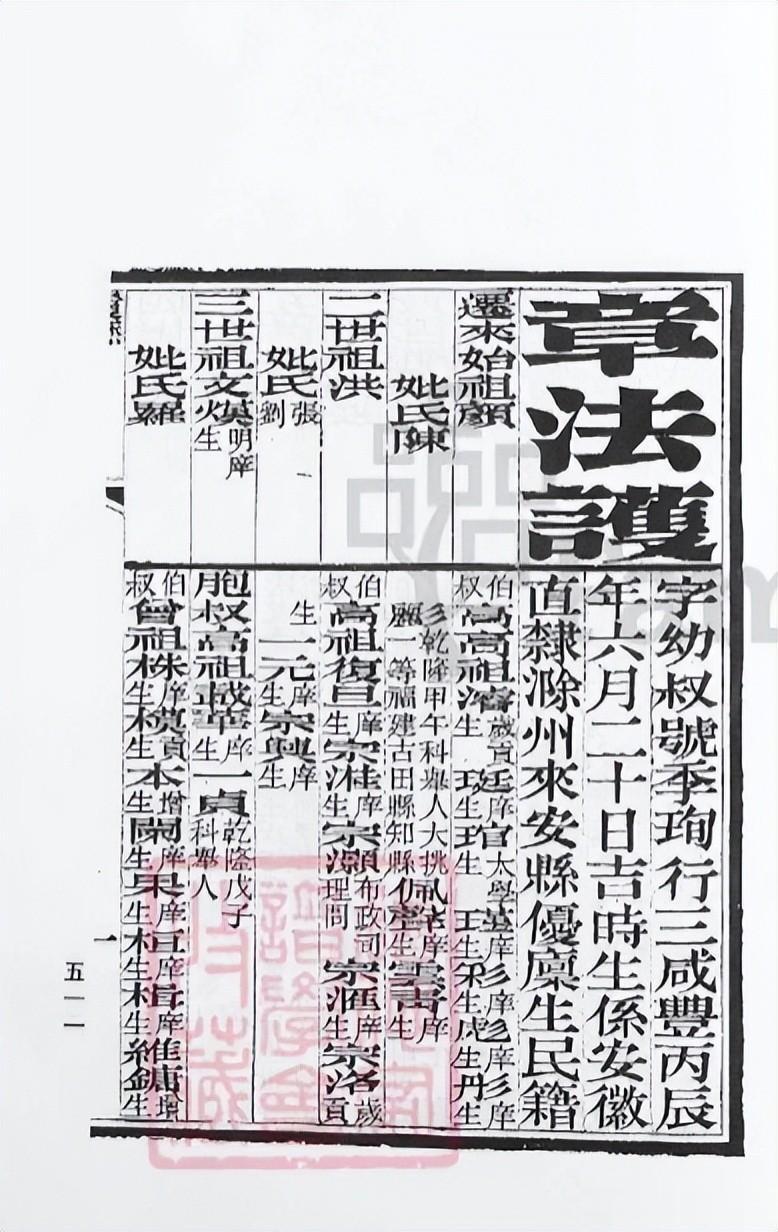 章法護
字幼叔號季珣行三咸豐丙辰
年六月二十日吉時生係安徽
直隸滁州來安縣優廩生民籍
遷來始祖顏
妣氏陳
二世祖洪
妣氏張劉
三世祖文煥明庠生
妣氏羅
伯叔高高祖濬歲貢生 珽庠生琯太學生 庠生 彩庠生彪庠生丹
彣乾隆甲午科舉人大挑一等福建古田縣知縣 庠生雲 庠生
伯叔高祖復旦庠生宗淮庠生宗灝布政司理問宗滙庠生宗洛歲貢
生一元庠生宗興庠生
胞叔高祖載華庠生一貞乾隆戊子科舉人
伯叔曾祖株庠生模貢生本增生 庠生果庠生 庠生楫庠生維鏞增生
一
五一一
譜學會
收藏